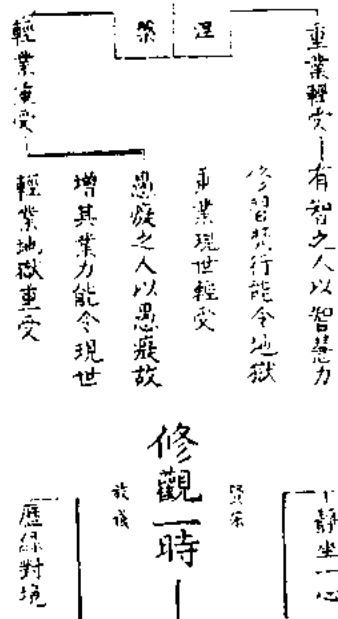 涅
槃
重業輕受
有智之人以智慧力
修習梵行能令地獄
重業現世輕受
輕業重受
愚癡之人以愚癡故
增其業力能令現世
輕業地獄重受
修觀一時
靜坐一心
歷緣對境